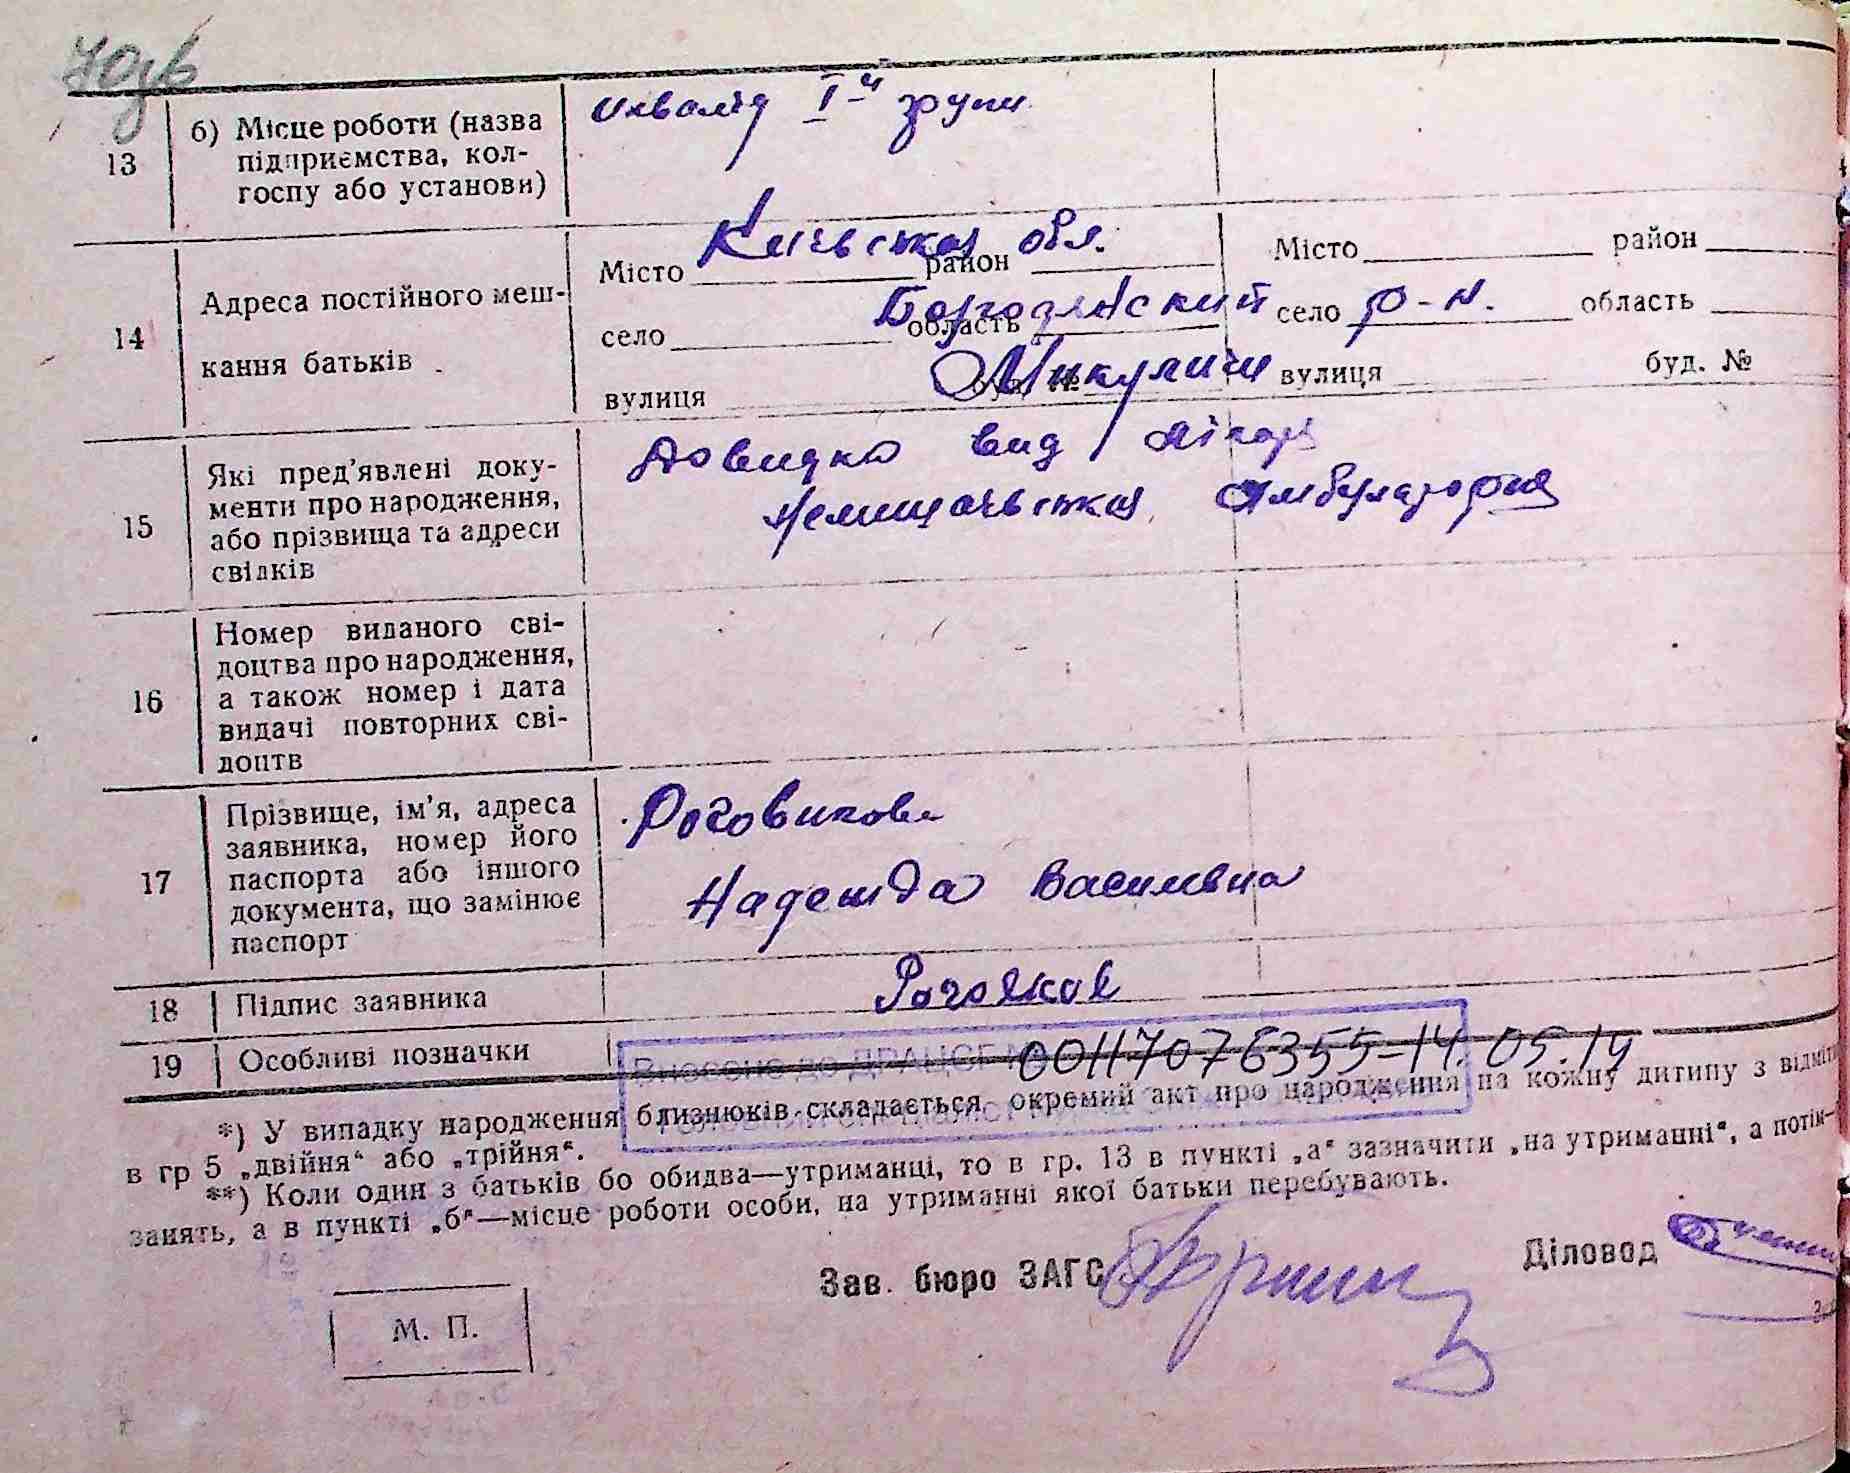 70зв
13
б) Місце роботи (назва
підприємства, кол-
госпу або установи)
инвалід І-ї групи
14
Адреса постійного меш-
кання батьків
Київська обл.
Місто район
Бородянский р-н.
село область
Микуличі
вулиця буд. №
Місто район
село область
вулиця буд. №
15
Які пред'явлені доку-
менти про народження,
або прізвища та адреси
свідків
Довидка вид лікаря
Немишаєвська амбулатория
16
Номер виданого сві-
доцтва про народження,
а також номер і дата
видачі повторних сві-
доцтв
17
Прізвище, ім'я, адреса
заявника, номер його
паспорта або іншого
документа, що замінює
паспорт
Роговикова
Надежда Василивна
18
Підпис заявника
19
Особливі позначки
Внесено до ДРАЦСГ
00117076355-14.05.14
*) У випадку народження близнюків складається окремий акт про народження на кожну дитину з відміт
в гр 5 „двійня“ або „трійня“.
**) Коли один з батьків бо обидва—утриманці, то в гр. 13 в пункті „а“ зазначити „на утриманні“, а потім—
занять, а в пункті „б“—місце роботи особи, на утриманні якої батьки перебувають.
Зав. бюро ЗАГС
Діловод
М. П.